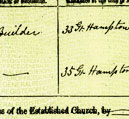 Builder 33 Gt. Hampton
— 35 Gt. Hampto
s of the Established Church, by